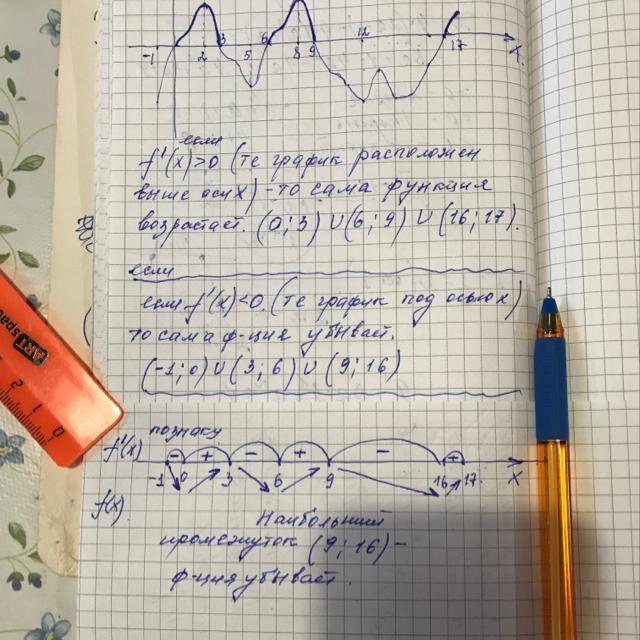 -1 2 3 5 6 8 9 12 17 X
если
f'(x)>0 (те график расположен
выше оси X) - то сама функция
возрастает. (0;3) U (6;9) U (16;17).
если
если f'(x)<0. (те график под осью x)
то сама ф-ция убывает.
(-1;0) U (3;6) U (9;16)
ART space
2 1 0
по знаку
f'(x) - + - + - +
-1 0 3 6 9 16 17. X
f(x)
Наибольший
промежуток (9;16) -
ф-ция убывает.